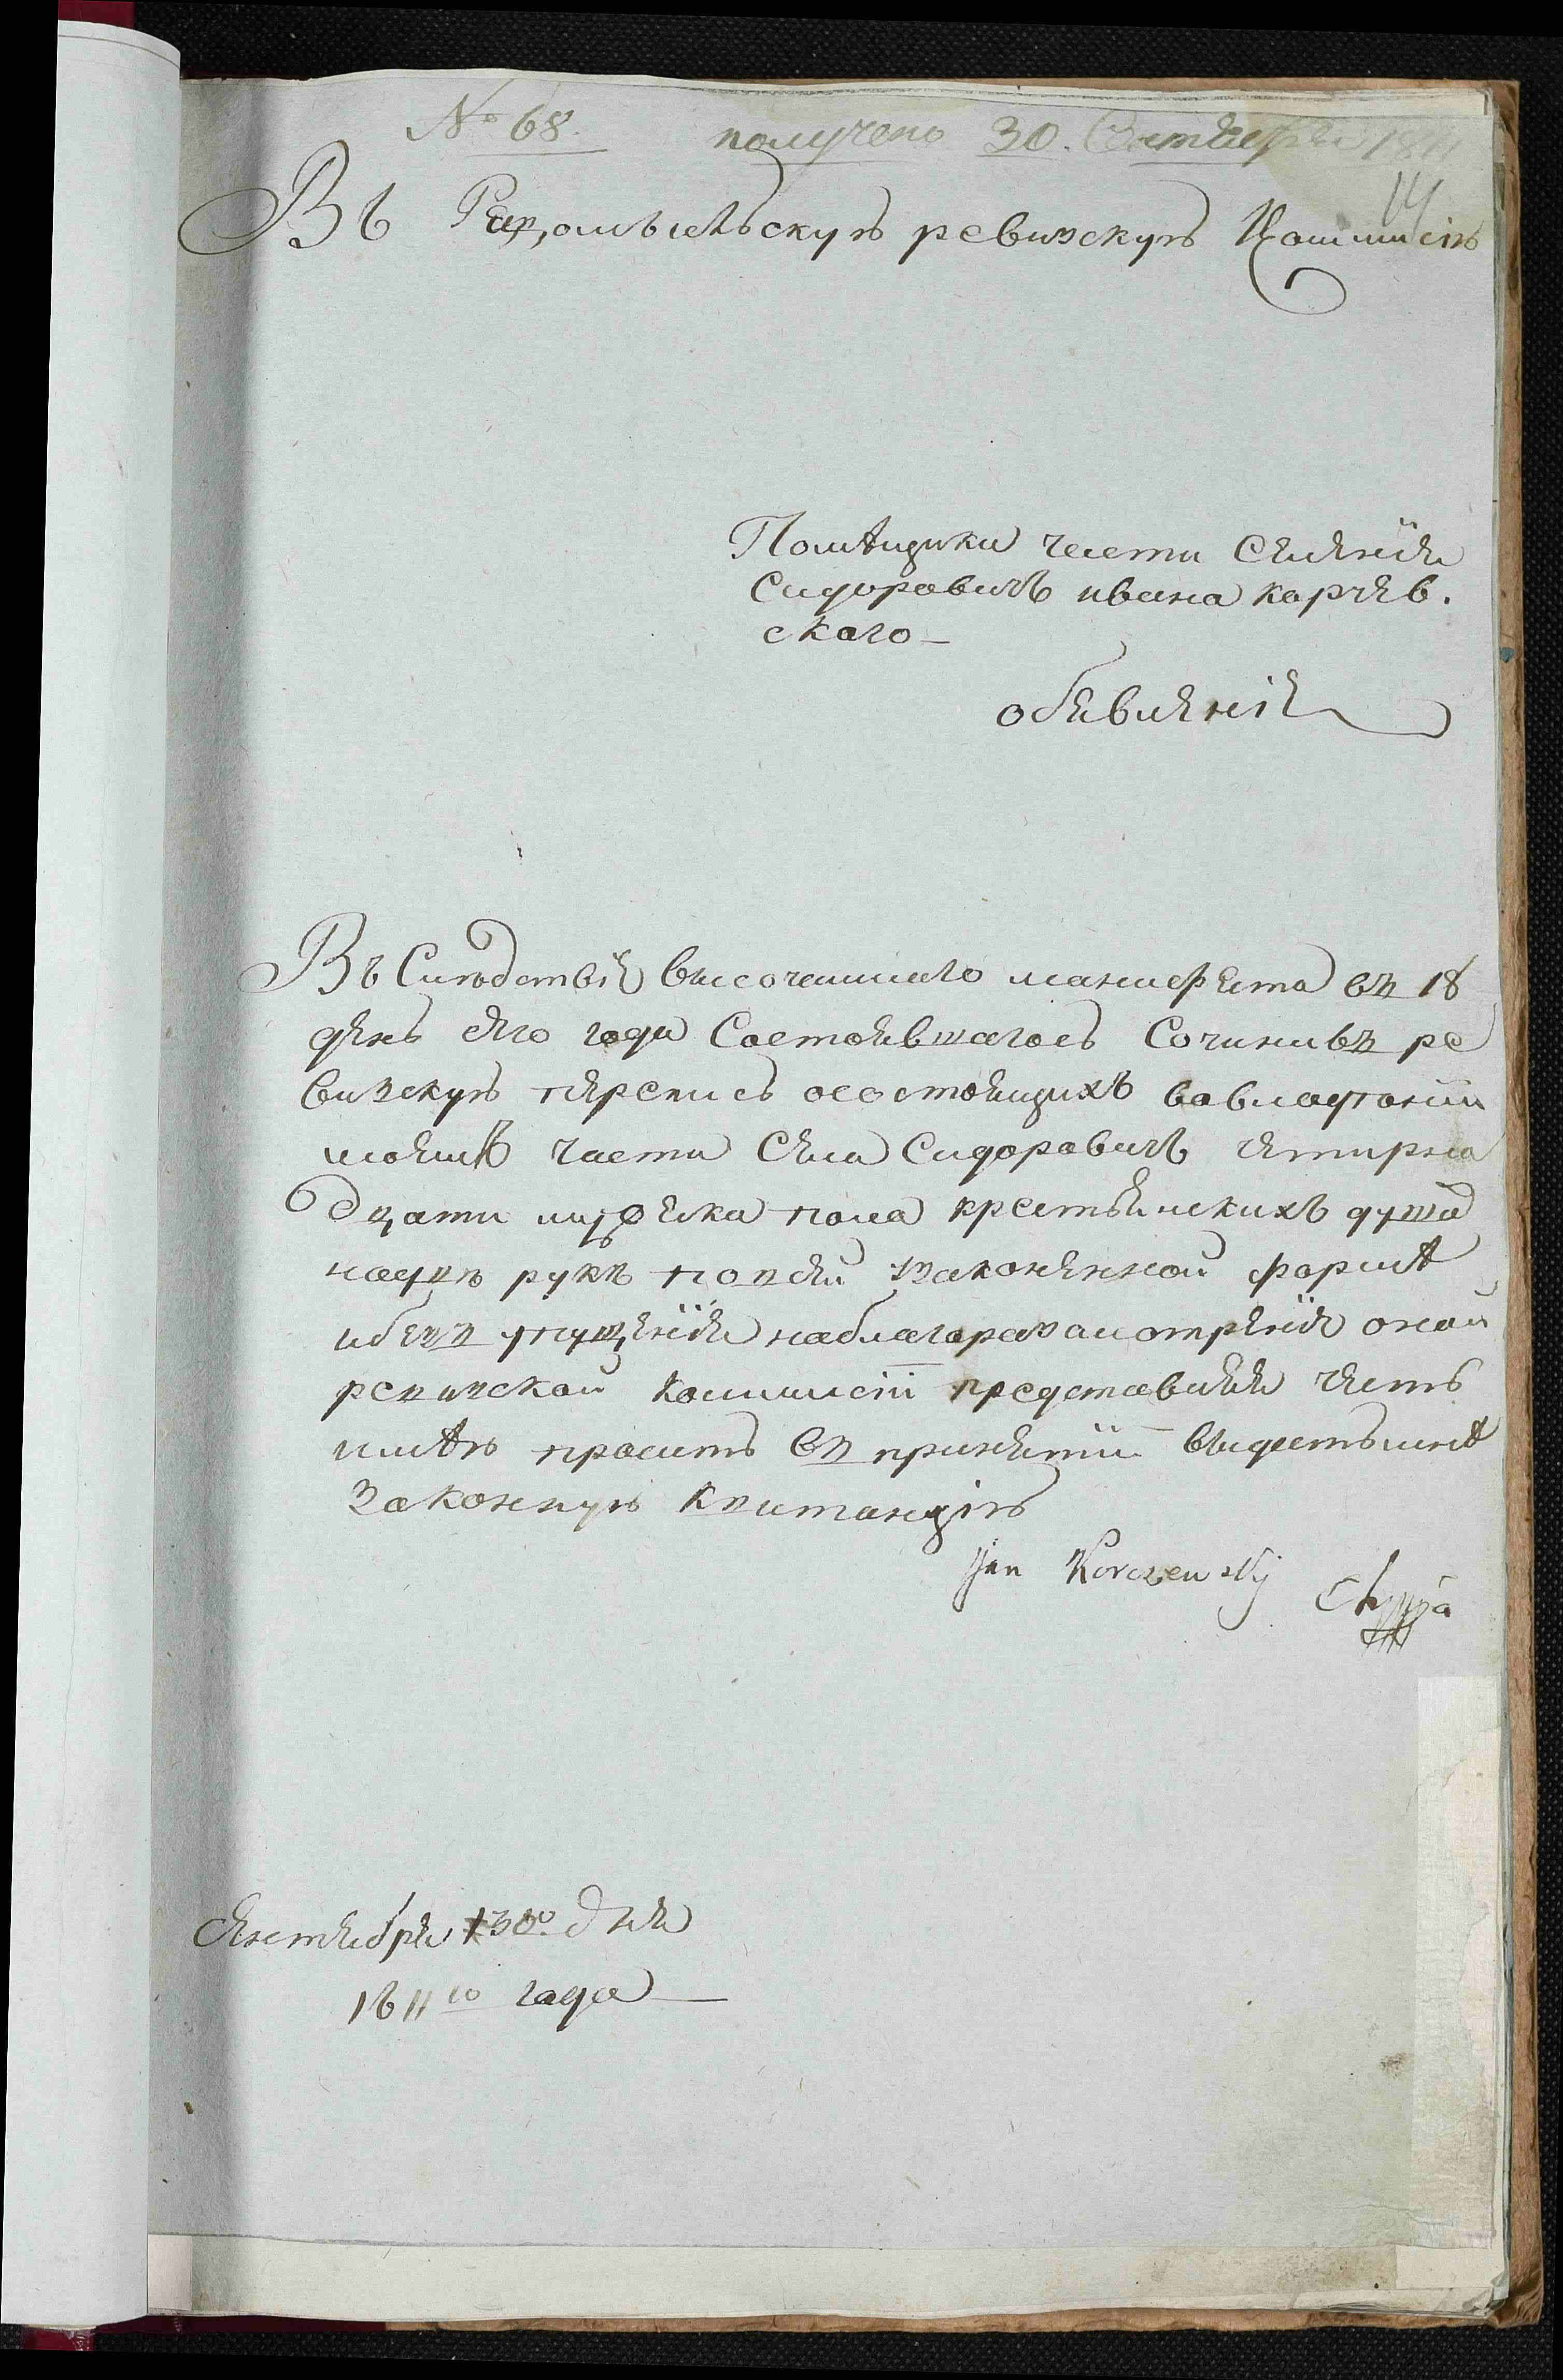 № 68. получено 30. Сентября 1811
14
Въ Радомысльскую ревизскую Коммисію
Помѣщика части Селенія
Сидоровичъ ивана корчев.
скаго
обявленіе
Въ Слѣдствіе высочаишаго манифеста въ 18
день сего года Состоявшагось Сочинивъ ре
визскую перепись осостоящихъ вовладѣніи
моемъ части Села Сидоровичъ четирна
дцати мужеска пола крестьянскихъ душа
поданой законенной формѣ
ибезъ упущенія наблагоразсмотреніе оной
ревизской коммисіи представляя честь
имѣю просить въ принятіи видать мнѣ
Законную квитанцію
Jan Korczewsky
Сентября 30го. дня
1811го года